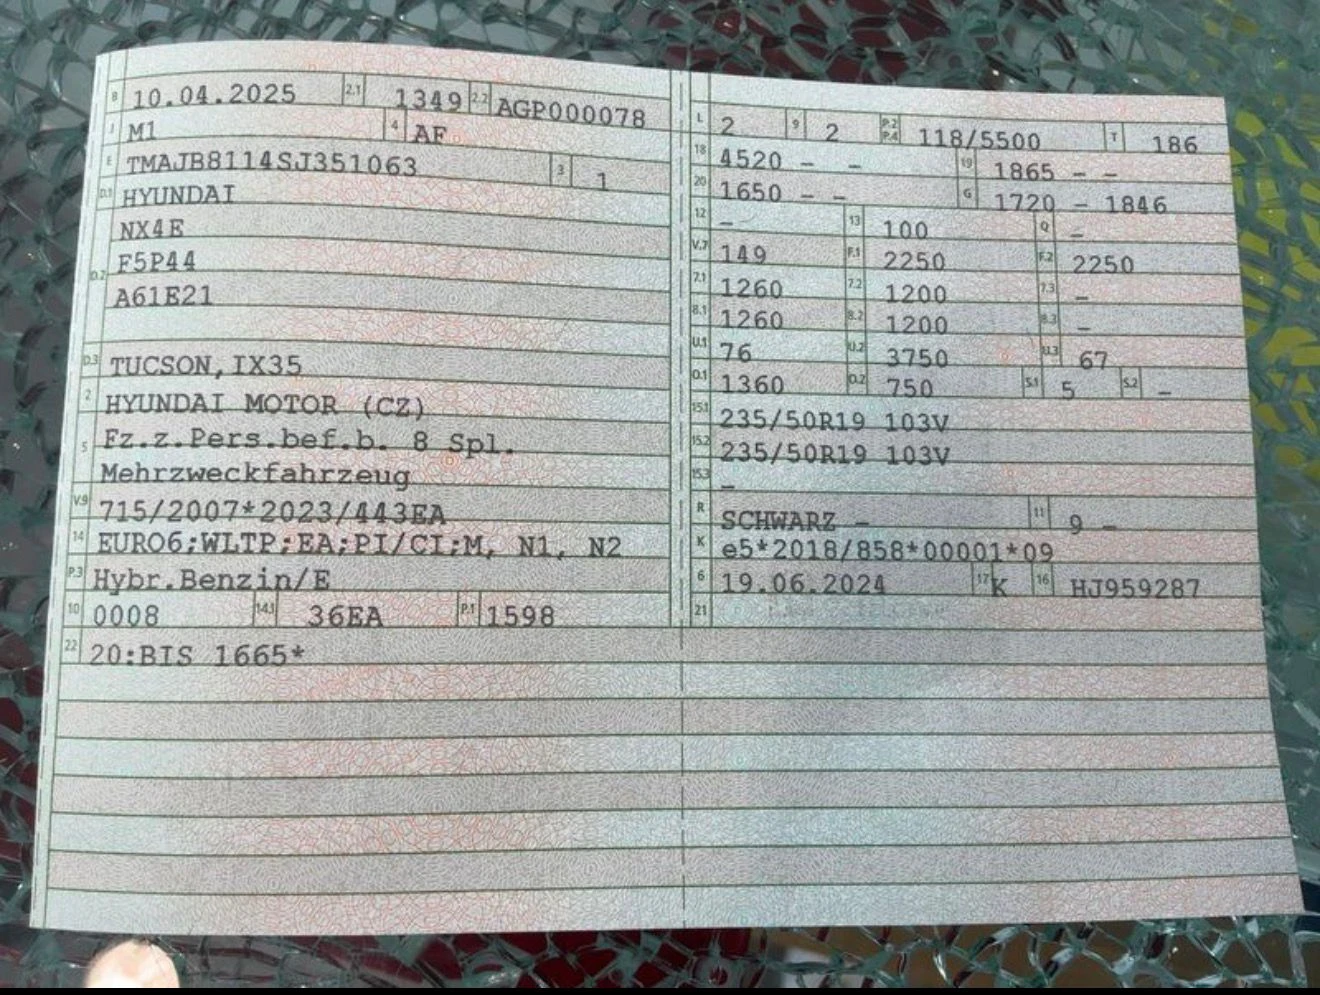 B 10.04.2025 2.1 1349 2.2 AGP000078
J M1 4 AF
E TMAJB8114SJ351063 3 1
D.1 HYUNDAI
D.2 NX4E
F5P44
A61E21
D.3 TUCSON,IX35
2 HYUNDAI MOTOR (CZ)
5 Fz.z.Pers.bef.b. 8 Spl.
Mehrzweckfahrzeug
V.9 715/2007*2023/443EA
14 EURO6;WLTP;EA;PI/CI;M, N1, N2
P.3 Hybr.Benzin/E
10 0008 14.1 36EA P.1 1598
22 20:BIS 1665*
L 2 9 2 P.2 P.4 118/5500 T 186
18 4520 - - 19 1865 - -
20 1650 - - G 1720 - 1846
12 - 13 100 Q -
V.7 149 F.1 2250 F.2 2250
7.1 1260 7.2 1200 7.3 -
8.1 1260 8.2 1200 8.3 -
U.1 76 U.2 3750 U.3 67
O.1 1360 O.2 750 S.1 5 S.2 -
15.1 235/50R19 103V
15.2 235/50R19 103V
15.3 -
R SCHWARZ - 11 9 -
K e5*2018/858*00001*09
6 19.06.2024 17 K 16 HJ959287
21